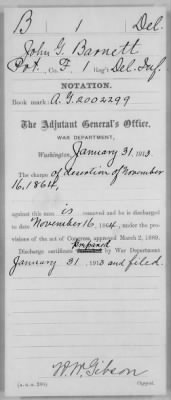 B 1 Del.
John G. Barnett
Pvt., Co. F, 1 Reg't Del. Inf.
NOTATION.
Book mark: A.G. 2002299
The Adjutant General's Office,
WAR DEPARTMENT,
Washington, January 31, 1913.
The charge of desertion of November
16, 1864,
against this man is removed and he is discharged
to date November 16, 1864, under the pro-
visions of the act of Congress approved March 2, 1889.
Discharge certificate prepared by War Department
January 31, 1913 and filed.
W. W. Gibson
Copyist.